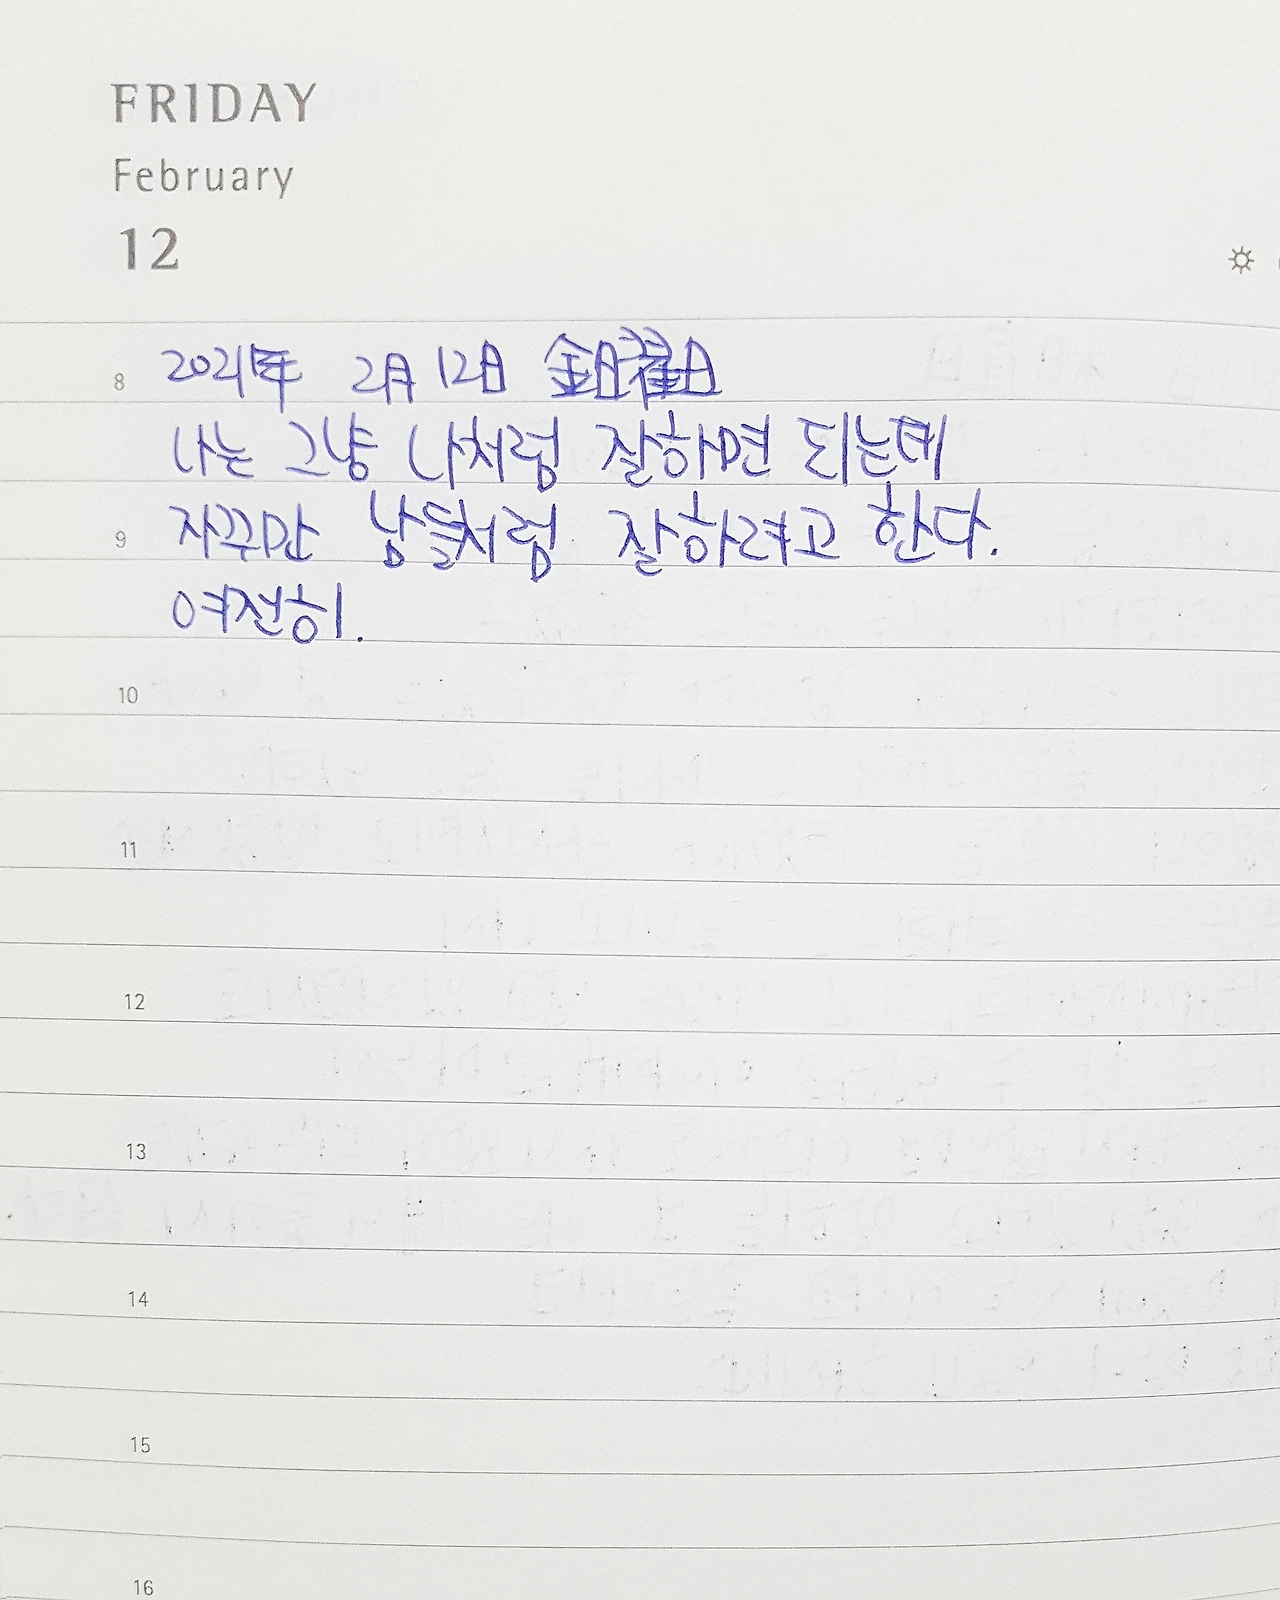 FRIDAY
February
12
8 2021年 2月 12日 金曜日
나는 그냥 나처럼 잘하면 되는데
9 자꾸만 남들처럼 잘하려고 한다.
여전히.
10
11
12
13
14
15
16